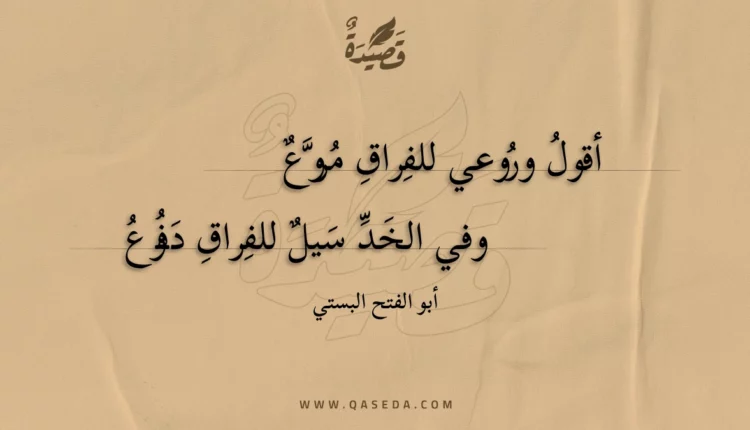 قَصِيْدَةٌ
أقولُ ورُوعي للفِراقِ مُروَّعٌ
وفي الخَدِّ سَيلٌ للفِراقِ دَفُوعُ
أبو الفتح البستي
WWW.QASEDA.COM